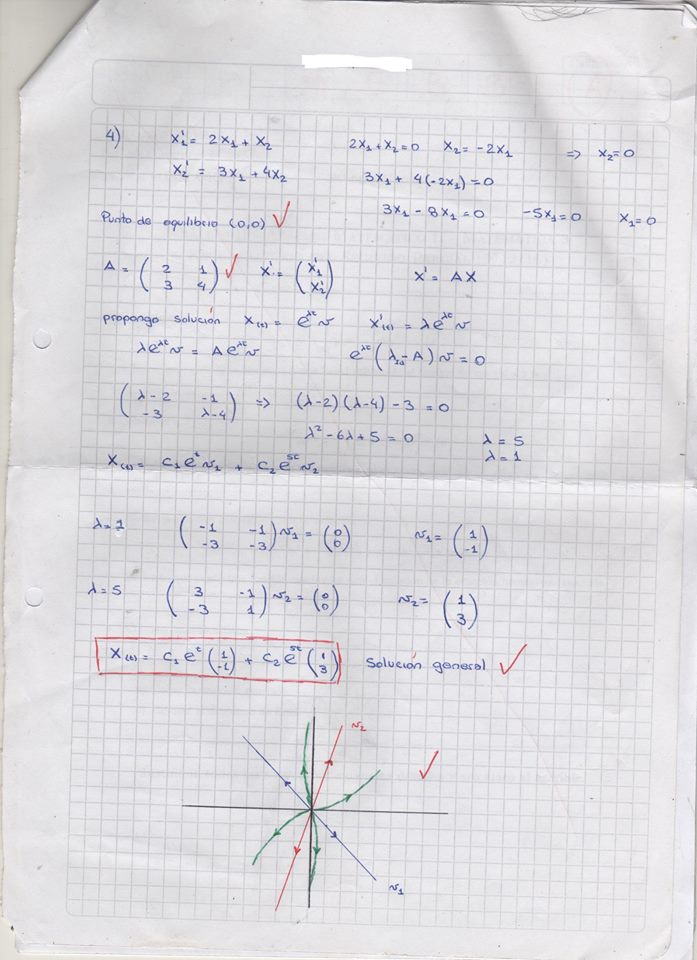 4) X₁' = 2X₁ + X₂ 2X₁ + X₂ = 0 X₂ = -2X₁ => X₂ = 0
X₂' = 3X₁ + 4X₂ 3X₁ + 4(-2X₁) = 0
3X₁ - 8X₁ = 0 -5X₁ = 0 X₁ = 0
Punto de equilibrio (0,0) ✓
A = ( 2 1 ; 3 4 ) ✓ X' = ( X₁' ; X₂' ) X' = AX
propongo solución X(t) = e^λt v X'(t) = λe^λt v
λe^λt v = A e^λt v e^λt (λId - A) v = 0
( λ-2 -1 ; -3 λ-4 ) => (λ-2)(λ-4) - 3 = 0
λ² - 6λ + 5 = 0 λ = 5
λ = 1
X(t) = C₁ e^t v₁ + C₂ e^5t v₂
λ = 1 ( -1 -1 ; -3 -3 ) v₁ = ( 0 ; 0 ) v₁ = ( 1 ; -1 )
λ = 5 ( 3 -1 ; -3 1 ) v₂ = ( 0 ; 0 ) v₂ = ( 1 ; 3 )
X(t) = C₁ e^t ( 1 ; -1 ) + C₂ e^5t ( 1 ; 3 ) Solución general ✓
v₂
✓
v₁